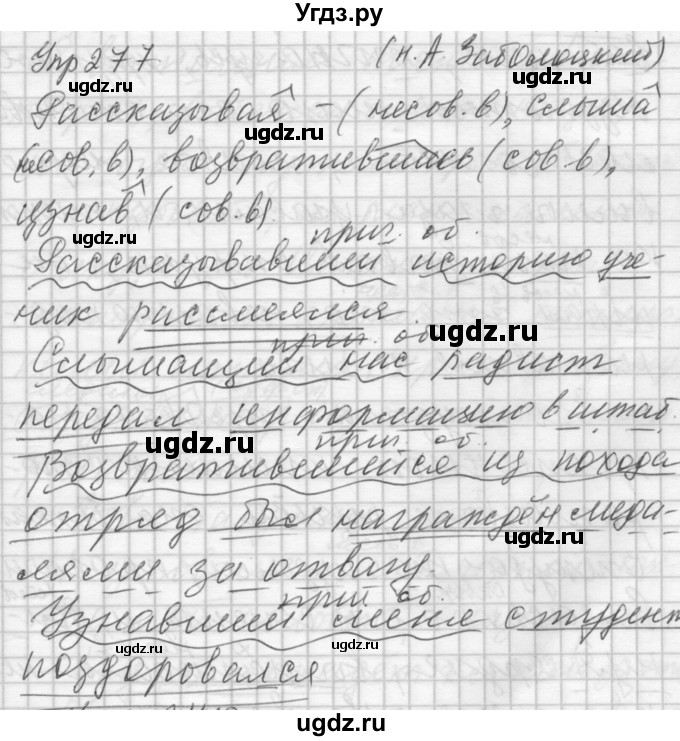 Угдз.ру
Упр 277 (Н. А. Заболоцкий)
Рассказывая - (несов. в), слыша
(несов. в), возвратившись (сов. в),
узнав (сов. в).
прич. об.
Рассказывавший историю уче-
ник рассмеялся.
прич. об.
Слышащий нас радист
передал информацию в штаб.
прич. об.
Возвратившийся из похода
отряд был награждён меда-
лями за отвагу.
прич. об.
Узнавший меня студент
поздоровался
ugdz.ru
ugdz.ru
ugdz.ru
ugdz.ru
ugdz.ru
ugdz.ru
ugdz.ru
ugdz.ru
ugdz.ru